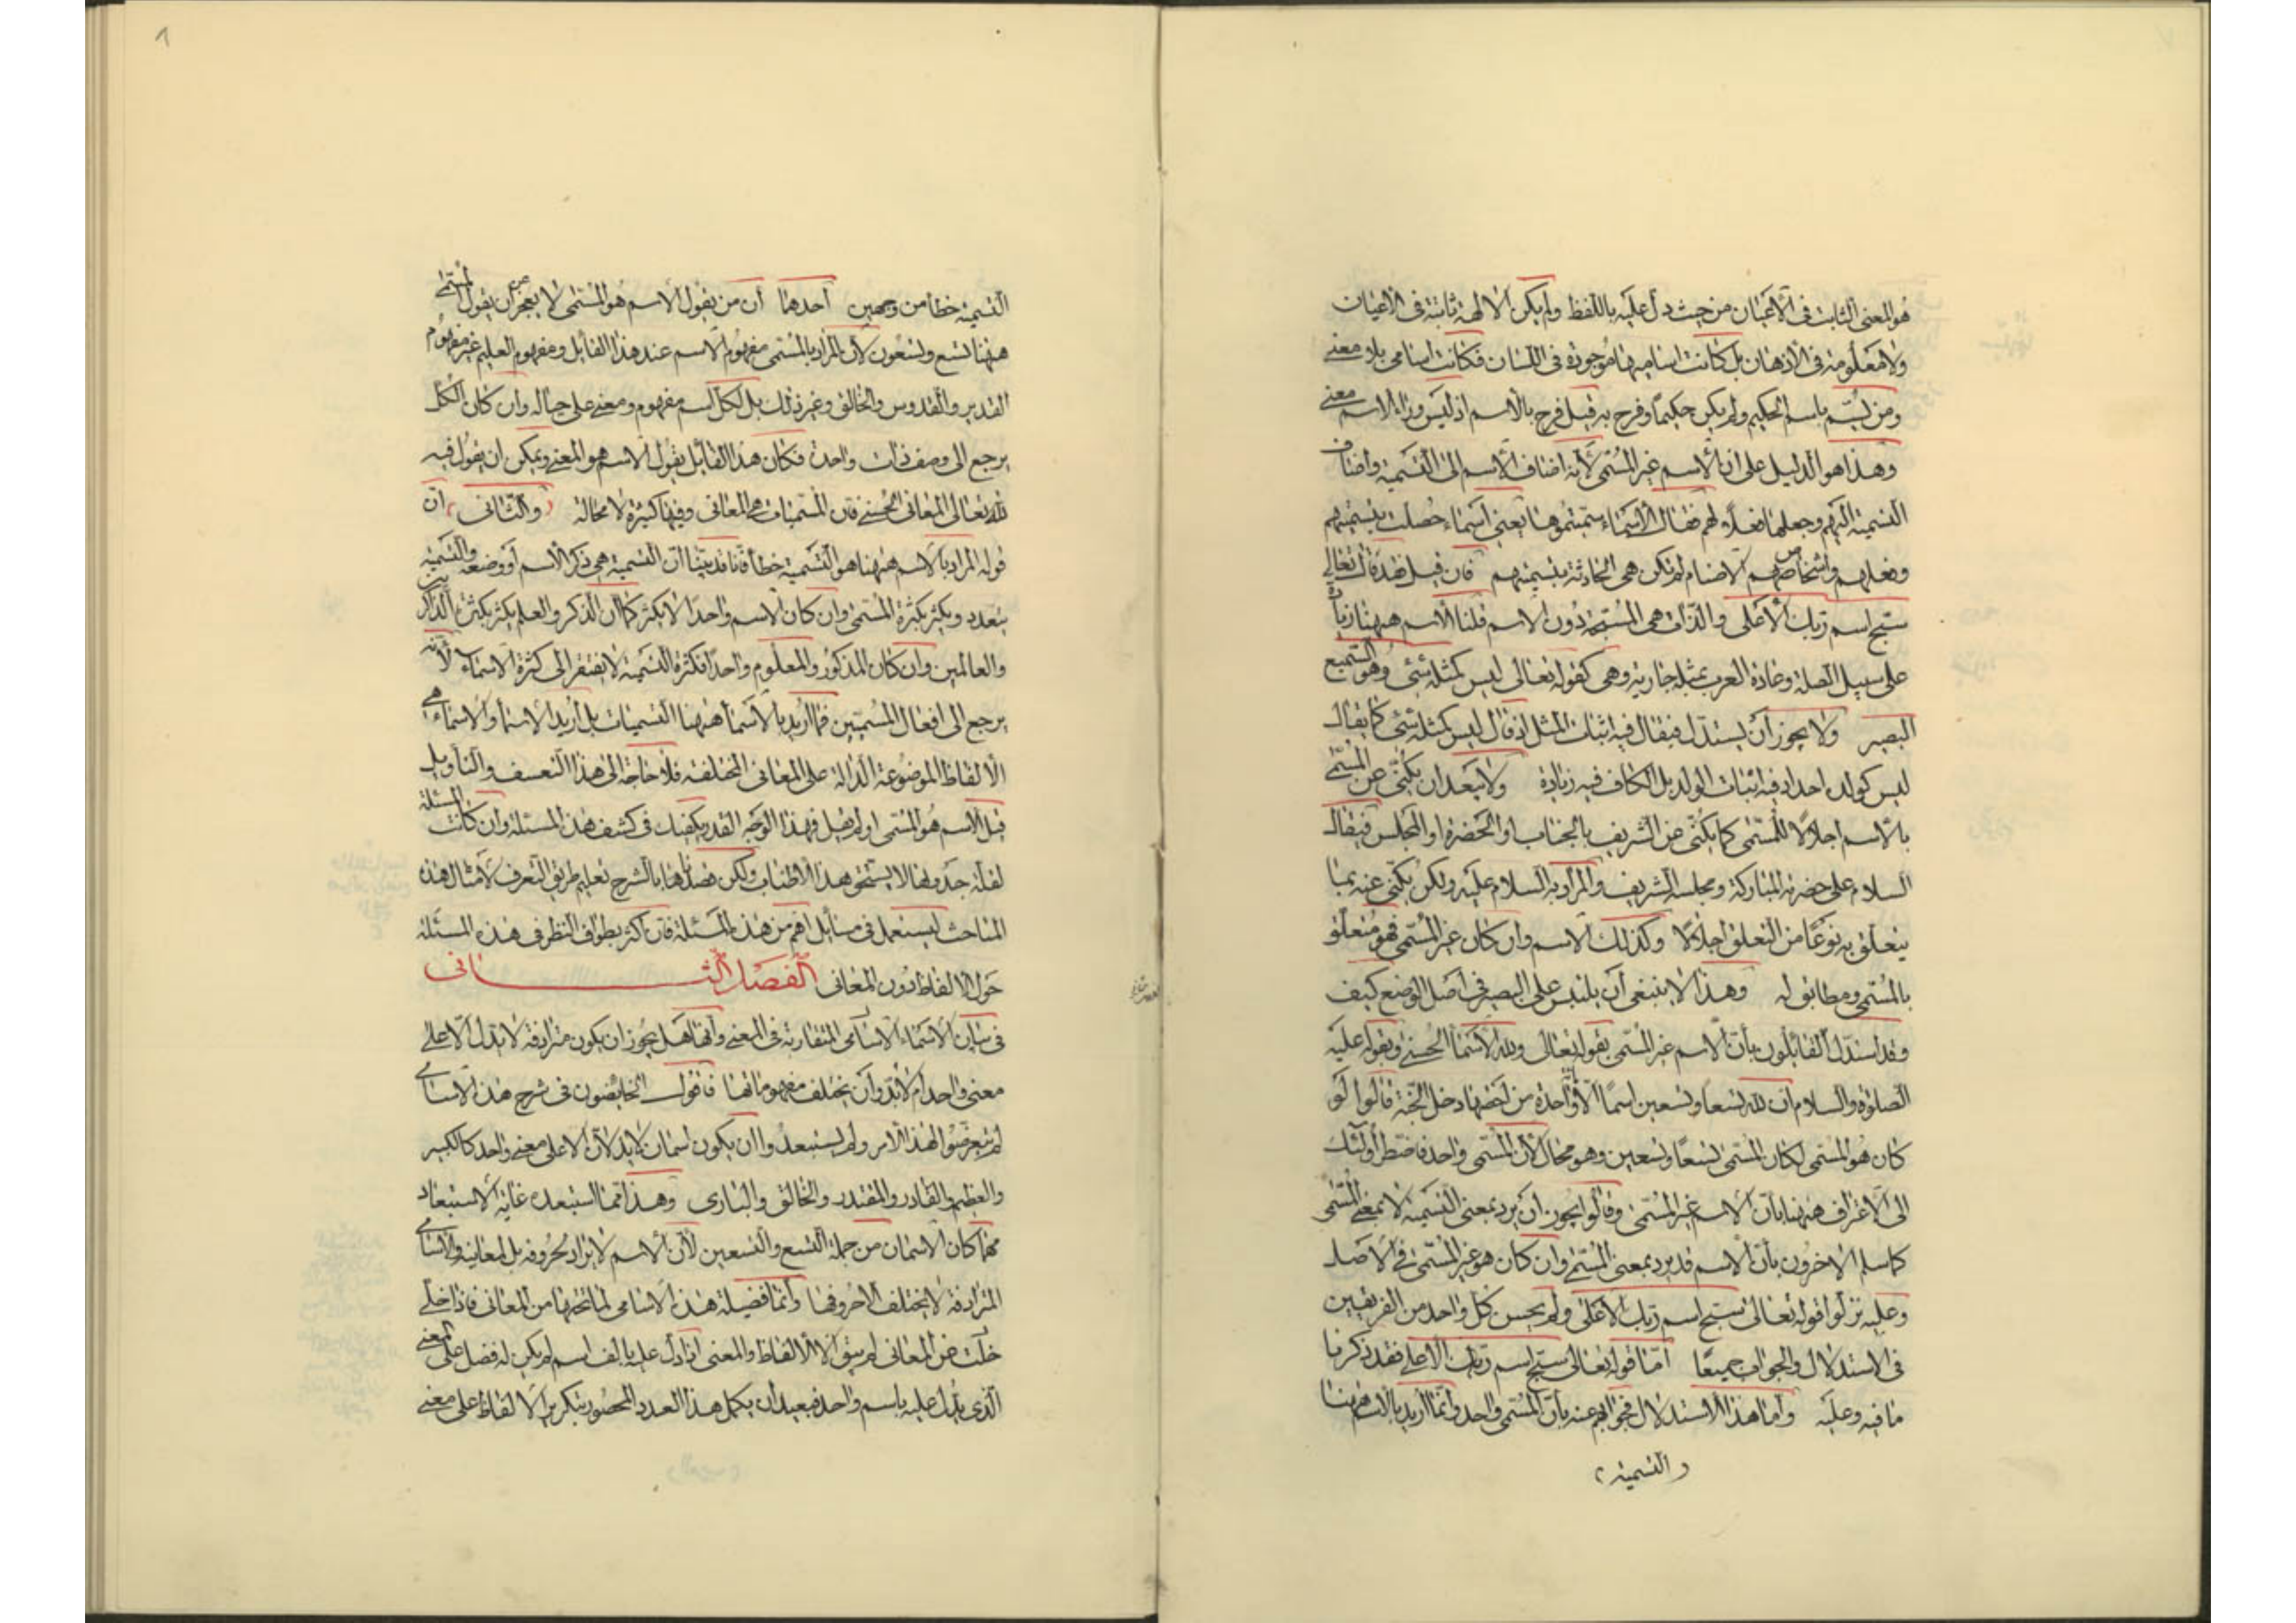 هو المعنى الثابت فى الاعيان من حيث دل عليه باللفظ ولم يكن الالهة ثابتة فى الاعيان
ولا معلومة فى الاذهان بل كانت اساميها موجودة فى اللسان فكانت اسامى بلا معنى
ومن تسمّ باسم الحكيم ولم يكن حكيمًا وفرح به قيل فرح بالاسم اذ ليس وراء الاسم معنى
وهذا هو الدليل على ان الاسم غير المسمّى لانه اضاف الاسم الى التسمية واضاف
التسمية اليهم وجعلها فعلا لهم فقال الاسماء سميتموها يعنى اسماء حصلت بتسميتهم
وفعلهم واشخاص الاصنام لم تكن هى الحادثة بتسميتهم فان قيل فقد قال تعالى
سبّح اسم ربك الاعلى والذات هى المسمّى دون الاسم قلنا الاسم ههنا زيادة
على سبيل الصلة وعادة العرب بمثله جارية وهى كقوله تعالى ليس كمثله شئ وهو السميع
البصير ولا يجوز أن يستدل فيقال فيه اثبات المثل اذ قال ليس كمثله شئ كما يقال
ليس كولد احد اذ فيه اثبات الولد بل الكاف فيه زيادة ولا يبعد ان يكنّى عن المسمّى
بالاسم اجلالًا للمسمّى كما يكنّى عن الشريف بالجناب او الحضرة او المجلس فيقال
السلام على حضرته المباركة ومجلسه الشريف والمراد به السلام عليه ولكن يكنّى عنه بما
يتعلق به نوعًا من التعلق اجلالًا وكذلك الاسم وان كان غير المسمّى فهو متعلق
بالمسمّى ومطابق له وهذا لا ينبغى أن يلتبس على البصير فى اصل الوضع كيف
وقد استدل القائلون بأن الاسم غير المسمّى بقوله تعالى ولله الاسماء الحسنى وبقوله عليه
الصلوة والسلام ان لله تسعا وتسعين اسمًا الا واحدة من احصاها دخل الجنة قالوا لو
كان هو المسمّى لكان المسمّى تسعًا وتسعين وهو محال لأن المسمّى واحد فاضطر أولئك
الى الاعتراف ههنا بأن الاسم غير المسمّى وقالوا يجوز أن يرد بمعنى التسمية لا بمعنى المسمّى
كما سلم الاخرون بأن الاسم قد يرد بمعنى المسمّى وان كان هو غير المسمّى فى الاصل
وعليه نزلوا قوله تعالى سبّح اسم ربك الاعلى ولم يحسن كل واحد من الفريقين
فى الاستدلال والجواب جميعًا أمّا قوله تعالى سبّح اسم ربك الاعلى فقد ذكرنا
ما فيه وعليه وأما هذا الاستدلال فجوابهم عنه بأن المسمّى واحد وأنما أريد بالاسم ههنا
التسمية
التسمية خطأ من وجهين أحدهما أن من يقول الاسم هو المسمّى لا يعجز أن يقول المسمّى
ههنا تسع وتسعون لأن المراد بالمسمّى مفهوم الاسم عند هذا القائل ومفهوم العليم غير مفهوم
القدير والقدوس والخالق وغير ذلك بل لكل اسم مفهوم ومعنى على حياله وان كان الكل
يرجع الى وصف ذات واحدة فكان هذا القائل يقول الاسم هو المعنى ويمكن ان يقول فيه
لله تعالى المعانى الحسنى فان المسميات هى المعانى وفيها كثرة لا محالة والثانى أن
قوله المراد بالاسم ههنا هو التسمية خطأ فانا قد بينا ان التسمية هى ذكر الاسم أو وضعه والتسمية
يتعدد ويكثر بكثرة المسمّى وان كان الاسم واحدًا كما ان الذكر والعلم يكثر بكثرة الذاكرين
والعالمين وان كان المذكور والمعلوم واحدًا فكثرة التسمية لا يفتقر الى كثرة الاسماء لأنه
يرجع الى افعال المسميين فما اريد بالاسماء ههنا التسميات بل أريد الاسماء والاسماء هى
الالفاظ الموضوعة الدالة على المعانى المختلفة فلا حاجة الى هذا التعسف والتأويل
قيل الاسم هو المسمّى او لم يقل فهذا الوجه القدر يكفيك فى كشف هذه المسئلة وان كانت المسئلة
لقلة جدواها لا يستحق هذا الاطناب ولكن قصدنا بالشرح تعليم طريق التعرف لأمثال هذه
المباحث ليستعمل فى مسائل اهم من هذه المسئلة فان اكثر تطواف النظر فى هذه المسئلة
حول الالفاظ دون المعانى الفصل الثانى
فى بيان الاسماء الاسامى المتقاربة فى المعنى وأنها هل يجوز ان يكون مترادفة لا تدل الا على
معنى واحد ام لا بد وأن يختلف مفهوماتها فاقول الخائضون فى شرح هذه الاسامى
لم يتعرضوا لهذا الامر ولم يستبعدوا ان يكون اسمان لا يدلان الا على معنى واحد كالكبير
والعظيم والقادر والمقتدر والخالق والبارى وهذا مما استبعده غاية الاستبعاد
مهما كان الاسمان من جملة التسع والتسعين لأن الاسم لا يراد لحروفه بل لمعانيه والاسامى
المترادفة لا يختلف الا حروفها وأنما فضيلة هذه الاسامى لما تحتها من المعانى فاذا خلى
خلت عن المعانى لم يبق الا الالفاظ والمعنى اذا دل عليه بالف اسم لم يكن له فضل على المعنى
الذى يدل عليه باسم واحد فبعيد ان يكمل هذا العدد المحصور بتكرير الالفاظ على معنى